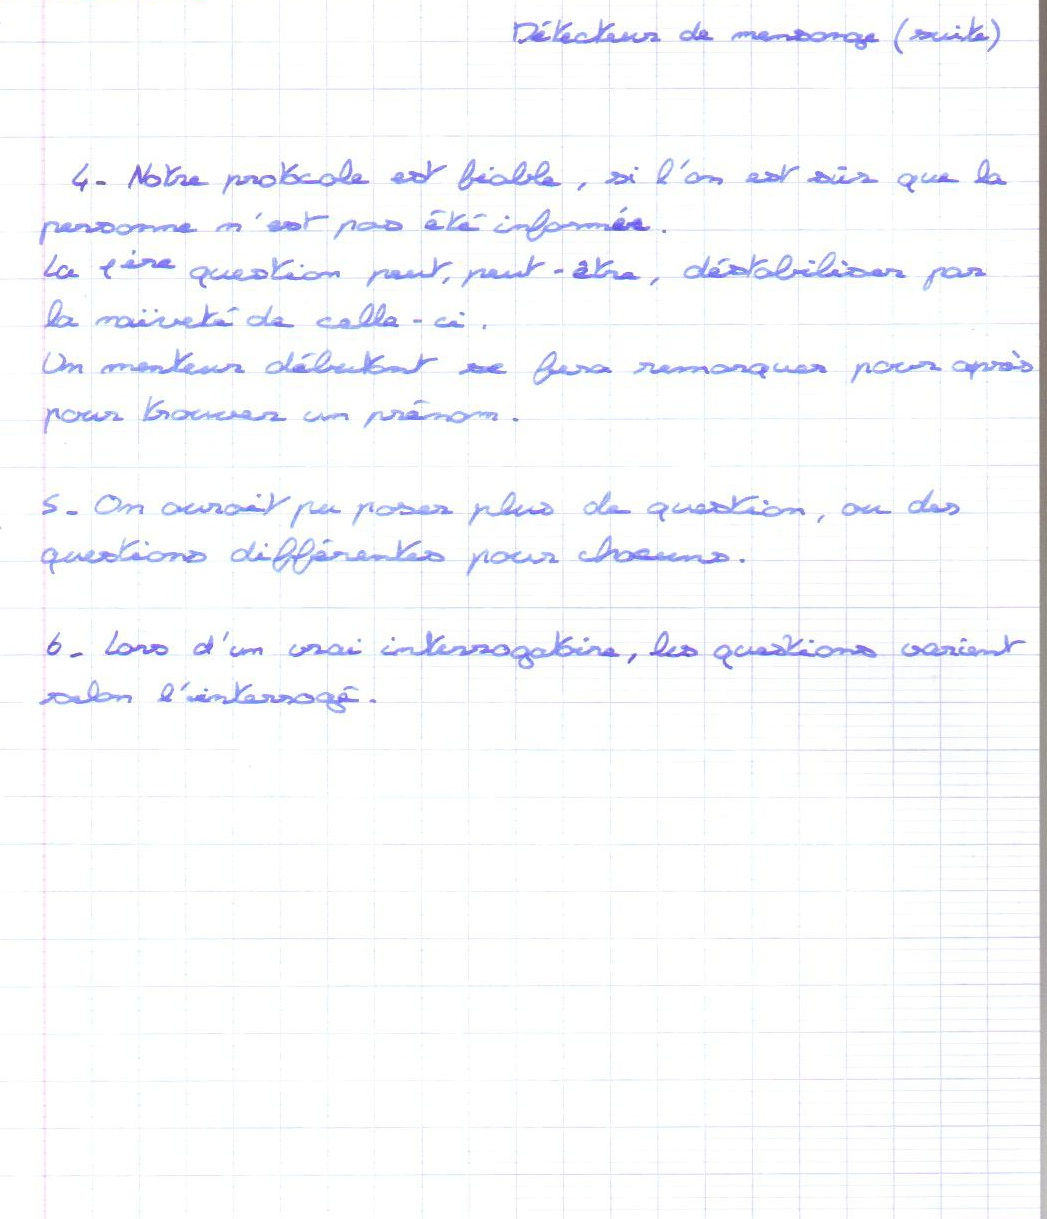 Détecteur de mensonge (suite)
4- Notre protocole est fiable, si l'on est sûr que la
personne n'est pas été informée.
La 1ère question peut, peut-être, déstabiliser par
la naïveté de celle-ci.
Un menteur débutant se fera remarquer pour après
pour trouver un prénom.
5- On aurait pu poser plus de question, ou des
questions différentes pour chacuns.
6- Lors d'un vrai interrogatoire, les questions varient
selon l'interrogé.